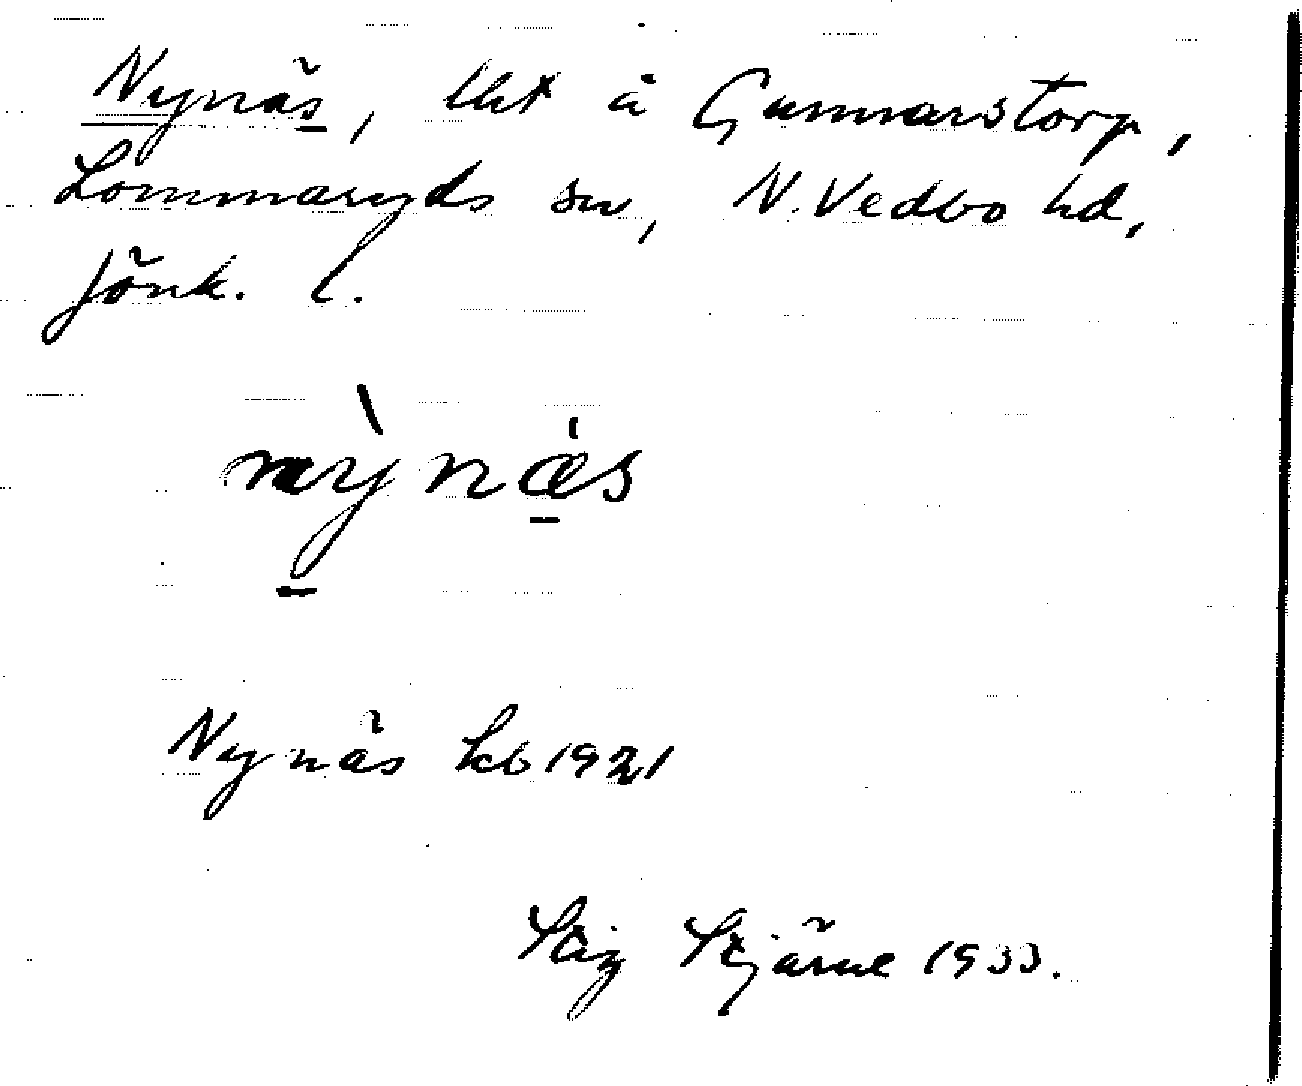 Nynäs, lht å Gunnarstorp,
Lommaryds sn, N. Vedbo hd,
Jönk. l.
nỳnæ̠s
Nynäs kb 1921
Stig Stjärne 1933.